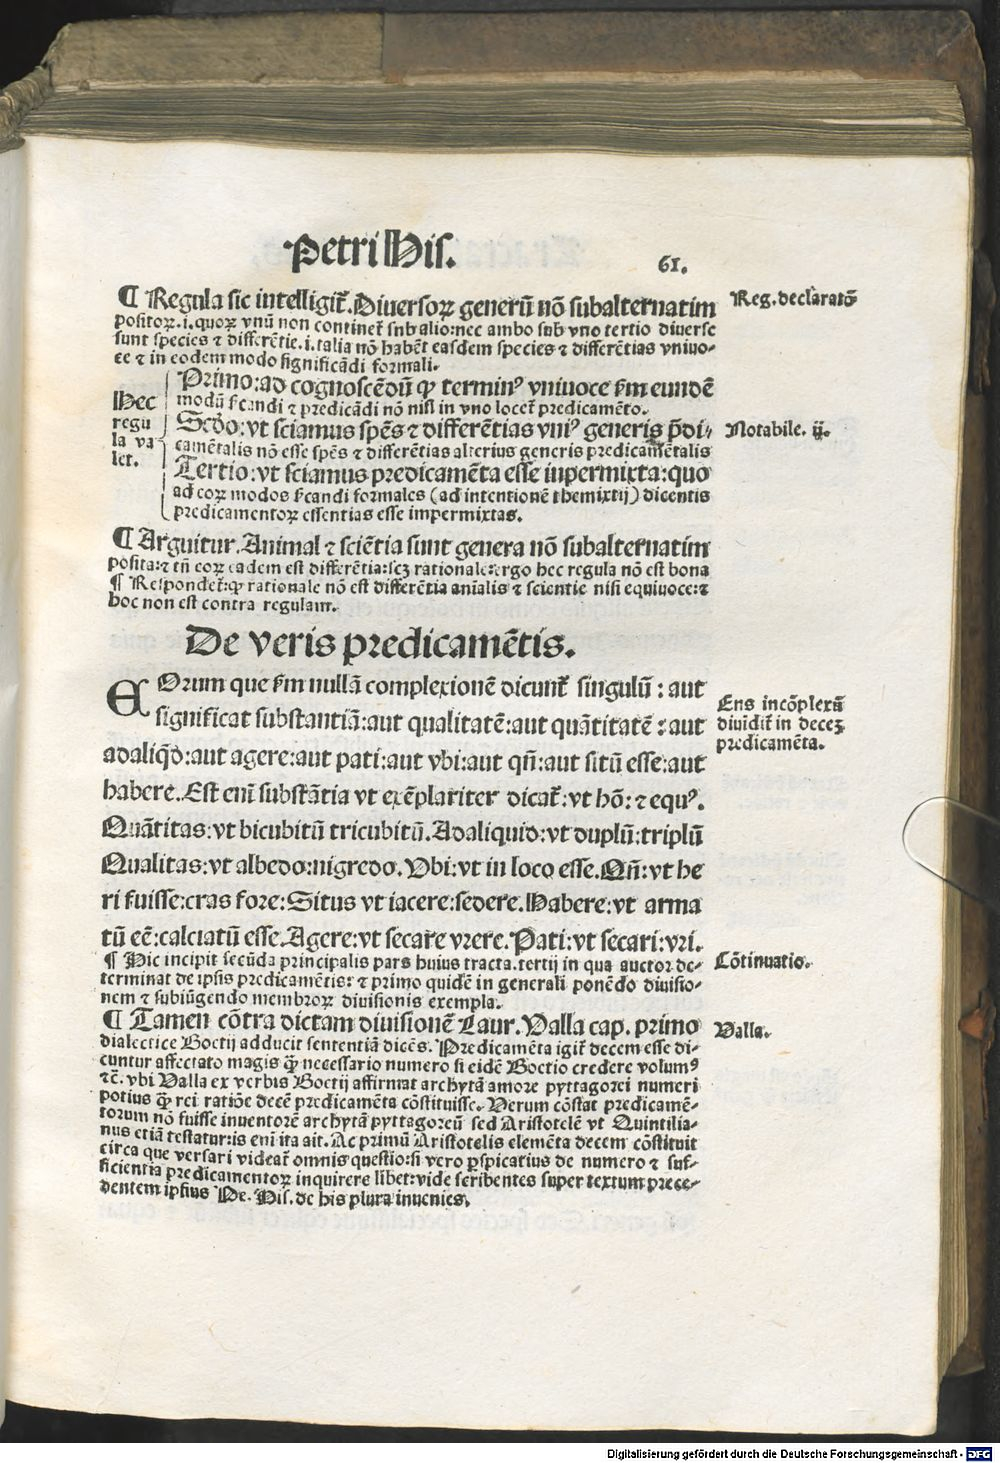 Petri His.
61.
¶ Regula sic intelligit᷑. Diuersoꝝ generū nō subalternatim
positoꝝ .i. quoꝝ vnū non continet᷑ sub alio: nec ambo sub vno tertio diuerse
sunt species ⁊ differētie .i. talia nō habēt easdem species ⁊ differētias vniuo-
ce ⁊ in eodem modo significādi formali.
Reg. declaratō
Hec
regu
la va
let.
Primo: ad cognoscēdū ꝙ terminꝰ vniuoce ẜm eundē
modū ẜcandi ⁊ predicādi nō nisi in vno locet᷑ predicamēto.
Scdo: vt sciamus spēs ⁊ differētias vniꝰ generis p̄di-
camētalis nō esse spēs ⁊ differētias alterius generis predicamētalis
Tertio: vt sciamus predicamēta esse inpermixta: quo
ad eoꝝ modos ẜcandi formales (ad intentionē themixtij) dicentis
predicamentoꝝ essentias esse impermixtas.
Notabile. ij.
¶ Arguitur. Animal ⁊ sciētia sunt genera nō subalternatim
posita: ⁊ tn̄ eoꝝ eadem est differētia: scꝫ rationale: ergo hec regula nō est bona
¶ Respondet᷑: ꝙ rationale nō est differētia aīalis ⁊ scientie nisi equiuoce: ⁊
hoc non est contra regulam.
De veris predicamētis.
EOrum que ẜm nullā complexionē dicunt᷑ singulū: aut
significat substantiā: aut qualitatē: aut quātitatē: aut
adaliqd̄: aut agere: aut pati: aut vbi: aut qn̄: aut situ esse: aut
habere. Est enī substātia vt exēplariter dicat᷑: vt hō: ⁊ equꝰ.
Quātitas: vt bicubitū tricubitū. Adaliquid: vt duplū: triplū
Qualitas: vt albedo: nigredo. Vbi: vt in loco esse. Qn̄: vt he
ri fuisse: cras fore: Situs vt iacere: sedere. Habere: vt arma
tū eē: calciatū esse. Agere: vt secare vrere. Pati: vt secari: vri.
Ens incōplexū
diuidit᷑ in decez
predicamēta.
¶ Hic incipit secūda principalis pars huius tracta. tertij in qua auctor de-
terminat de ipsis predicamētis: ⁊ primo quidē in generali ponēdo diuisio-
nem ⁊ subiūgendo membroꝝ diuisionis exempla.
Cōtinuatio.
¶ Tamen cōtra dictam diuisionē Laur. Valla cap. primo
dialectice Boetij adducit sententiā dicēs. Predicamēta igit᷑ decem esse di-
cuntur affectato magis ꝙ̄ necessario numero si eidē Boetio credere volumꝰ
⁊c̄. vbi Valla ex verbis Boetij affirmat archytā amore pyttagorei numeri
potius ꝙ̄ rei ratiōe decē predicamēta cōstituisse. Verum cōstat predicamē-
torum nō fuisse inuentorē archytā pyttagoreū sed Aristotelē vt Quintilia-
nus etiā testatur: is enī ita ait. Ac primū Aristotelis elemēta decem cōstituit
circa que versari videat᷑ omnis questio: si vero ꝑspicatius de numero ⁊ suf-
ficientia predicamentoꝝ inquirere libet: vide scribentes super textum prece-
dentem ipsius Pe. His. de his plura inuenies.
Valla.
Digitalisierung gefördert durch die Deutsche Forschungsgemeinschaft - DFG